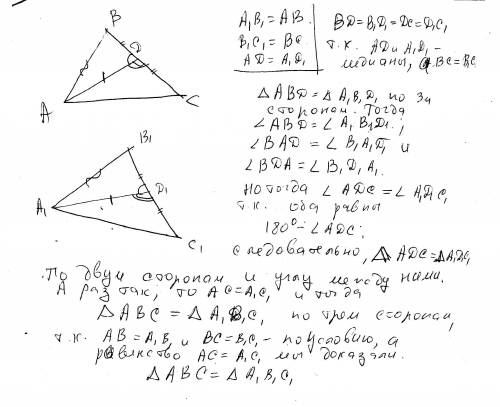 B
D
A
C
B₁
D₁
A₁
C₁
A₁B₁ = AB.
B₁C₁ = BC
AD = A₁D₁
BD = B₁D₁ = DC = D₁C₁
т.к. AD и A₁D₁ -
медианы, а BC = B₁C₁
△ABD = △A₁B₁D₁ по 3м
сторонам. Тогда
∠ABD = ∠A₁B₁D₁;
∠BAD = ∠B₁A₁D₁ и
∠BDA = ∠B₁D₁A₁.
Но тогда ∠ADC = ∠A₁D₁C₁
т.к. оба равны
180° - ∠ADC;
следовательно, △ADC = △A₁D₁C₁
По двум сторонам и углу между ними.
А раз так, то AC = A₁C₁ и тогда
△ABC = △A₁B₁C₁ по трем сторонам,
т.к. AB = A₁B₁ и BC = B₁C₁ - по условию, а
равенство AC = A₁C₁ мы доказали.
△ABC = △A₁B₁C₁